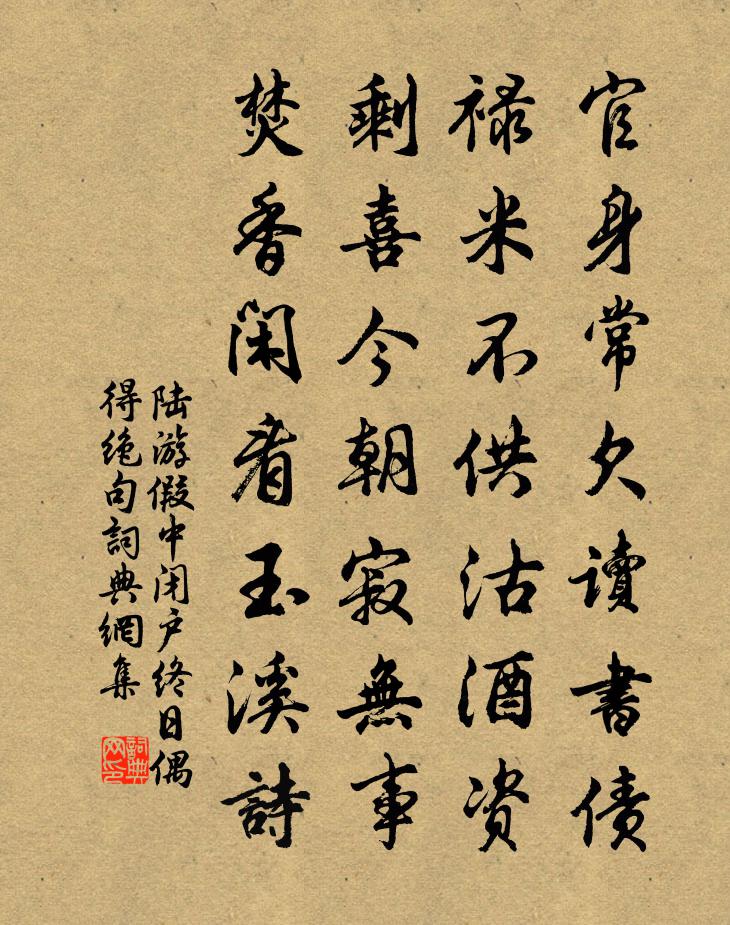 官身常欠讀書债
禄米不供沽酒资
剩喜今朝寂無事
焚香閑看玉溪詩
陆游假中闭户终日偶
得绝句詞典網集
詞典网印